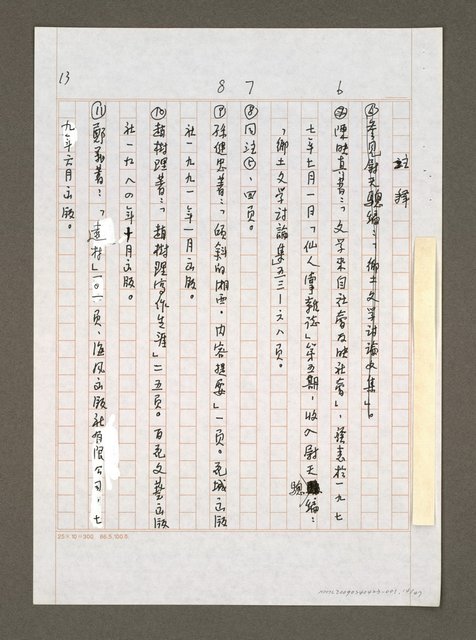 註釋
④參見尉天驄編:「鄉土文學討論收集」。
6 陳映真著:「文學來自社會反映社會」,發表於一九七
七年七月一日「仙人掌雜誌」第五期,收入尉天驄編:
「鄉土文學討論集」五三—六八頁。
7 ⑧同注⑤,四頁。
8 ⑨孫健忠著:「傾斜的湘西·內容提要」一頁。花城出版
社一九九一年一月出版。
⑩趙樹理著:「趙樹理寫作生涯」二五頁。百花文藝出版
社一九八四年十月出版。
⑪鄭義著:「遠村」一〇一頁,海風出版社有限公司,七
九年六月出版。
13
25×10=300 86.5,100本